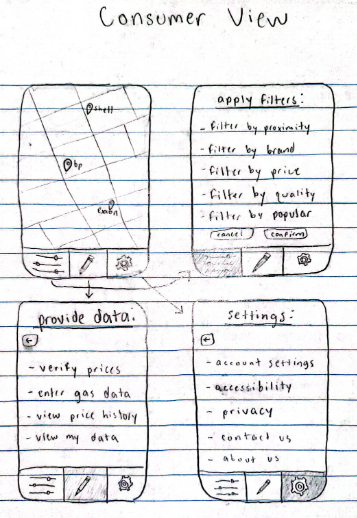 Consumer View
shell
bp
apply filters:
- filter by proximity
- filter by brand
- filter by price
- filter by quality
- filter by popular
cancel confirm
provide data:
- verify prices
- enter gas data
- view price history
- view my data
settings:
- account settings
- accessibility
- privacy
- contact us
- about us